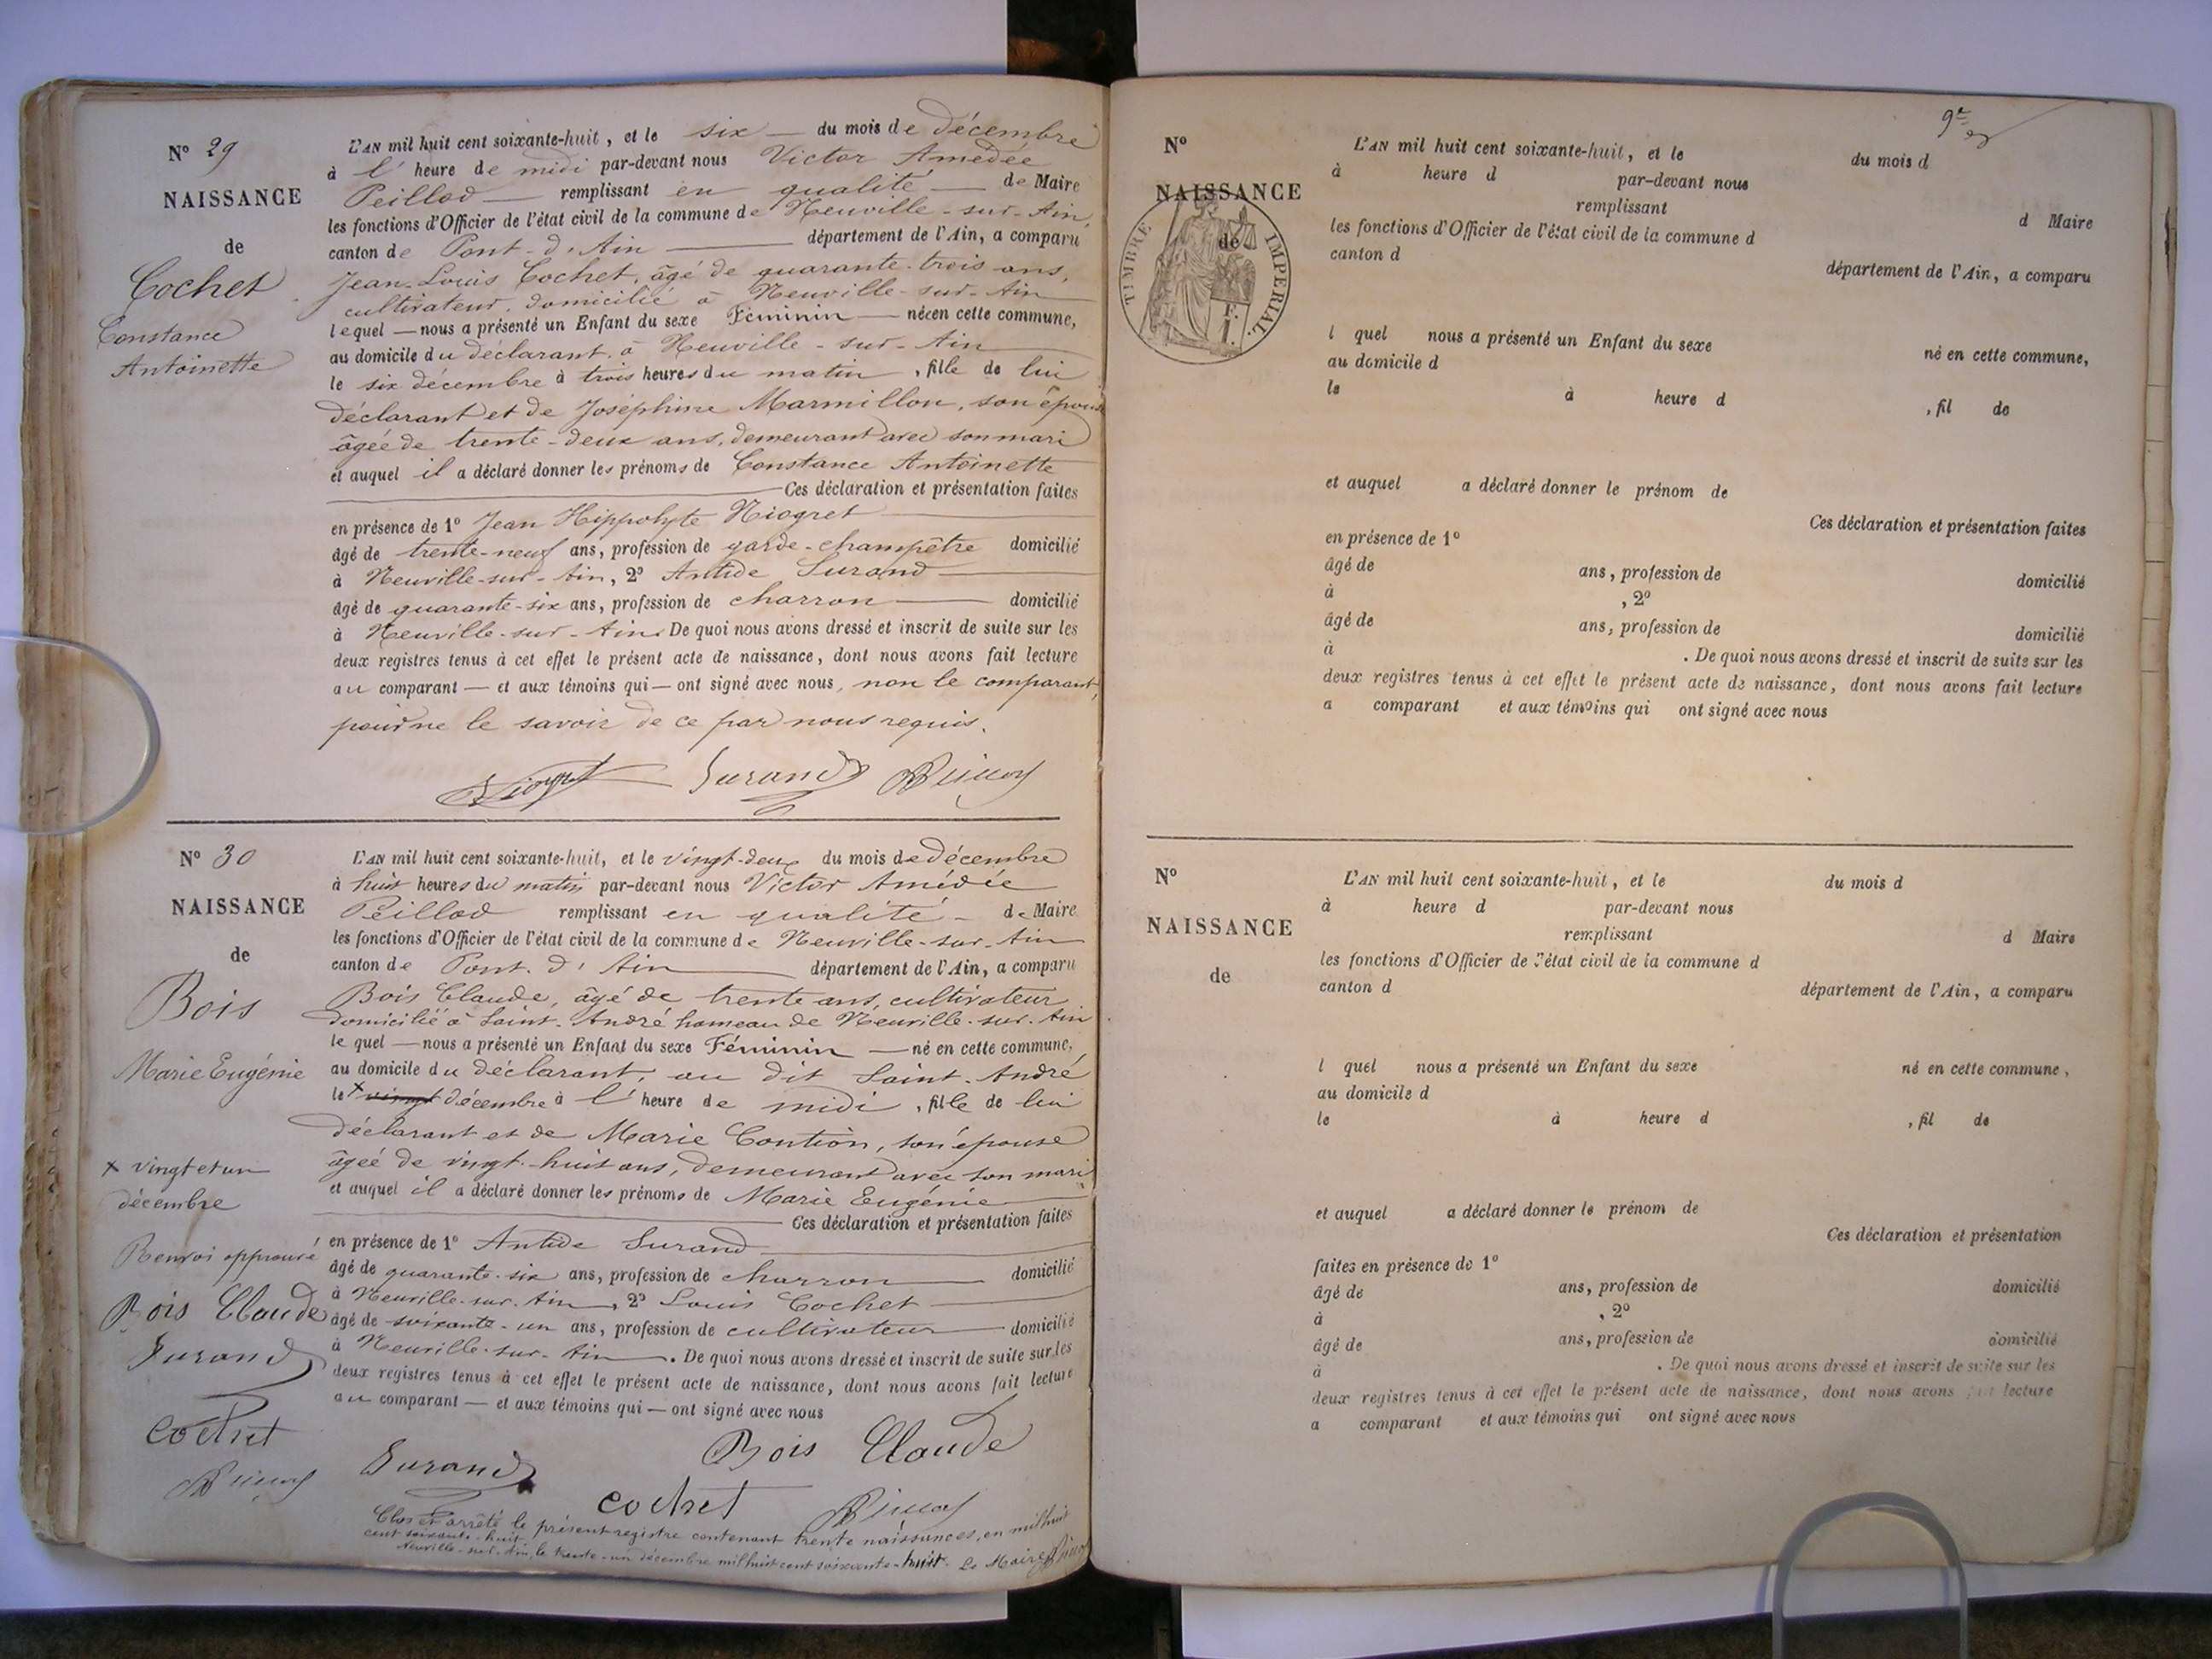 N° 29
NAISSANCE
de
Cochet
Constance
Antoinette
L'AN mil huit cent soixante-huit, et le six du mois de décembre
à l' heure de midi par-devant nous Victor Amédée
Peillod remplissant en qualité de Maire
les fonctions d'Officier de l'état civil de la commune de Neuville-sur-Ain
canton de Pont-d'Ain département de l'Ain, a comparu
Jean-Louis Cochet, âgé de quarante-trois ans,
cultivateur, domicilié à Neuville-sur-Ain
lequel nous a présenté un Enfant du sexe Féminin né en cette commune,
au domicile du déclarant, à Neuville-sur-Ain
le six décembre à trois heures du matin, fille de lui
déclarant et de Joséphine Marmillon, son épouse
âgée de trente-deux ans, demeurant avec son mari
et auquel il a déclaré donner les prénoms de Constance Antoinette
Ces déclaration et présentation faites
en présence de 1° Jean Hippolyte Niogret
âgé de trente-neuf ans, profession de garde-champêtre domicilié
à Neuville-sur-Ain, 2° Antide Durand
âgé de quarante-six ans, profession de charron domicilié
à Neuville-sur-Ain. De quoi nous avons dressé et inscrit de suite sur les
deux registres tenus à cet effet le présent acte de naissance, dont nous avons fait lecture
au comparant et aux témoins qui ont signé avec nous, non le comparant,
pour ne le savoir de ce par nous requis.
Niogret Durand
N° 30
NAISSANCE
de
Bois
Marie Eugénie
x vingt et un
décembre
Renvoi approuvé
Bois Claude
Durand
Cochet
L'AN mil huit cent soixante-huit, et le vingt-deux du mois de décembre
à huit heures du matin par-devant nous Victor Amédée
Peillod remplissant en qualité de Maire
les fonctions d'Officier de l'état civil de la commune de Neuville-sur-Ain
canton de Pont-d'Ain département de l'Ain, a comparu
Bois Claude, âgé de trente ans, cultivateur
domicilié à Saint-André hameau de Neuville-sur-Ain
lequel nous a présenté un Enfant du sexe Féminin né en cette commune,
au domicile du déclarant, au dit Saint-André
le x vingt décembre à l' heure de midi, fille de lui
déclarant et de Marie Contion, son épouse
âgée de vingt-huit ans, demeurant avec son mari
et auquel il a déclaré donner les prénoms de Marie Eugénie
Ces déclaration et présentation faites
en présence de 1° Antide Durand
âgé de quarante-six ans, profession de charron domicilié
à Neuville-sur-Ain, 2° Louis Cochet
âgé de soixante-un ans, profession de cultivateur domicilié
à Neuville-sur-Ain. De quoi nous avons dressé et inscrit de suite sur les
deux registres tenus à cet effet le présent acte de naissance, dont nous avons fait lecture
au comparant et aux témoins qui ont signé avec nous
Bois Claude
Durand
Cochet
Clos et arrêté le présent registre contenant trente naissances, en mil huit
cent soixante-huit
Neuville-sur-Ain, le trente-un décembre mil huit cent soixante-huit. Le Maire
N°
NAISSANCE
de
TIMBRE IMPERIAL.
L'AN mil huit cent soixante-huit, et le du mois d
à heure d par-devant nous
remplissant d Maire
les fonctions d'Officier de l'état civil de la commune d
canton d département de l'Ain, a comparu
l quel nous a présenté un Enfant du sexe né en cette commune,
au domicile d
le à heure d , fil de
et auquel a déclaré donner le prénom de
Ces déclaration et présentation faites
en présence de 1°
âgé de ans, profession de domicilié
à , 2°
âgé de ans, profession de domicilié
à . De quoi nous avons dressé et inscrit de suite sur les
deux registres tenus à cet effet le présent acte de naissance, dont nous avons fait lecture
a comparant et aux témoins qui ont signé avec nous
N°
NAISSANCE
de
L'AN mil huit cent soixante-huit, et le du mois d
à heure d par-devant nous
remplissant d Maire
les fonctions d'Officier de l'état civil de la commune d
canton d département de l'Ain, a comparu
l quel nous a présenté un Enfant du sexe né en cette commune,
au domicile d
le à heure d , fil de
et auquel a déclaré donner le prénom de
Ces déclaration et présentation
faites en présence de 1°
âgé de ans, profession de domicilié
à , 2°
âgé de ans, profession de domicilié
à . De quoi nous avons dressé et inscrit de suite sur les
deux registres tenus à cet effet le présent acte de naissance, dont nous avons fait lecture
a comparant et aux témoins qui ont signé avec nous